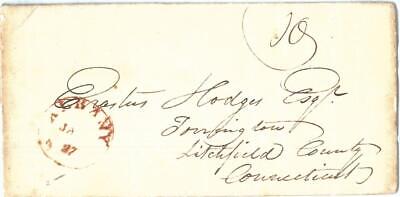 10
ALBANY
JA
27
Erastus Hodges Esqr.
Torrington
Litchfield County
Connecticut